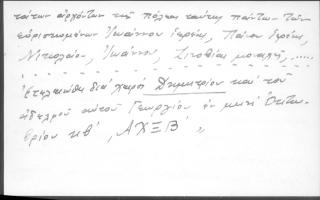 τούτων ἀρχόντων τῆς πόλεως ταύτης πάντων τῶν
εὑρισκομένων Ἰωάννου ἱερέως, Πάνου ἱερέως,
Νικολάου, Ἰωάννου, μοναχῆς, .....
Ἐτελειώθη διὰ χειρὸς Δημητρίου καὶ τοῦ
ἀδελφοῦ αὐτοῦ Γεωργίου ἐν μηνὶ Ὀκτω-
βρίου κθ' ͵ΑΧΞΒ' "